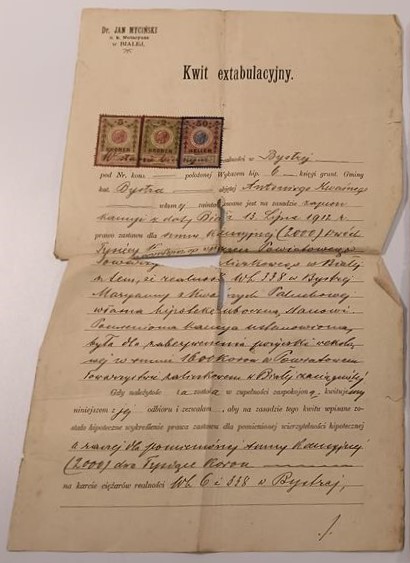 Dr. JAN MYCIŃSKI
c. k. Notaryusz
w BIAŁEJ.
Kwit extabulacyjny.
5 2 50
KRONEN KRONEN HELLER
W stanie realności w Bystrej
pod Nr. kons. — położonej Wykazem hip. 6 księgi grunt. Gminy
kat. Bystra objętej Antoniego
własnej zaintabulowane jest na zasadzie
kaucyi z daty Biała 13 Lipca 1912 r.
prawo zastawu dla sumy kaucyjnej (2000) dwa
Tysiące Powiatowego
Towarz zaliczkowego w Białej
z tem, że realność Wh 338 w Bystrej
Maryanny z Paluchowej
własna hipotekę uboczną stanowi.
Powyższa kaucya ustanowiona
była dla zabezpieczenia pożyczki wekslo-
wej w sumie 1600 Koron w Powiatowem
Towarzystwie zaliczkowem w Białej zaciągniętej
Gdy należytość ta została w zupełności zaspokojoną, kwitujemy
niniejszem z jej odbioru i zezwalamy, aby na zasadzie tego kwitu wpisane zo-
stało hipoteczne wykreślenie prawa zastawu dla pomienionej wierzytelności hipotecznej
a raczej dla pomienionej sumy kaucyjnej
(2000) dwa Tysiące Koron
na karcie ciężarów realności Wh 6 i 338 w Bystrej,